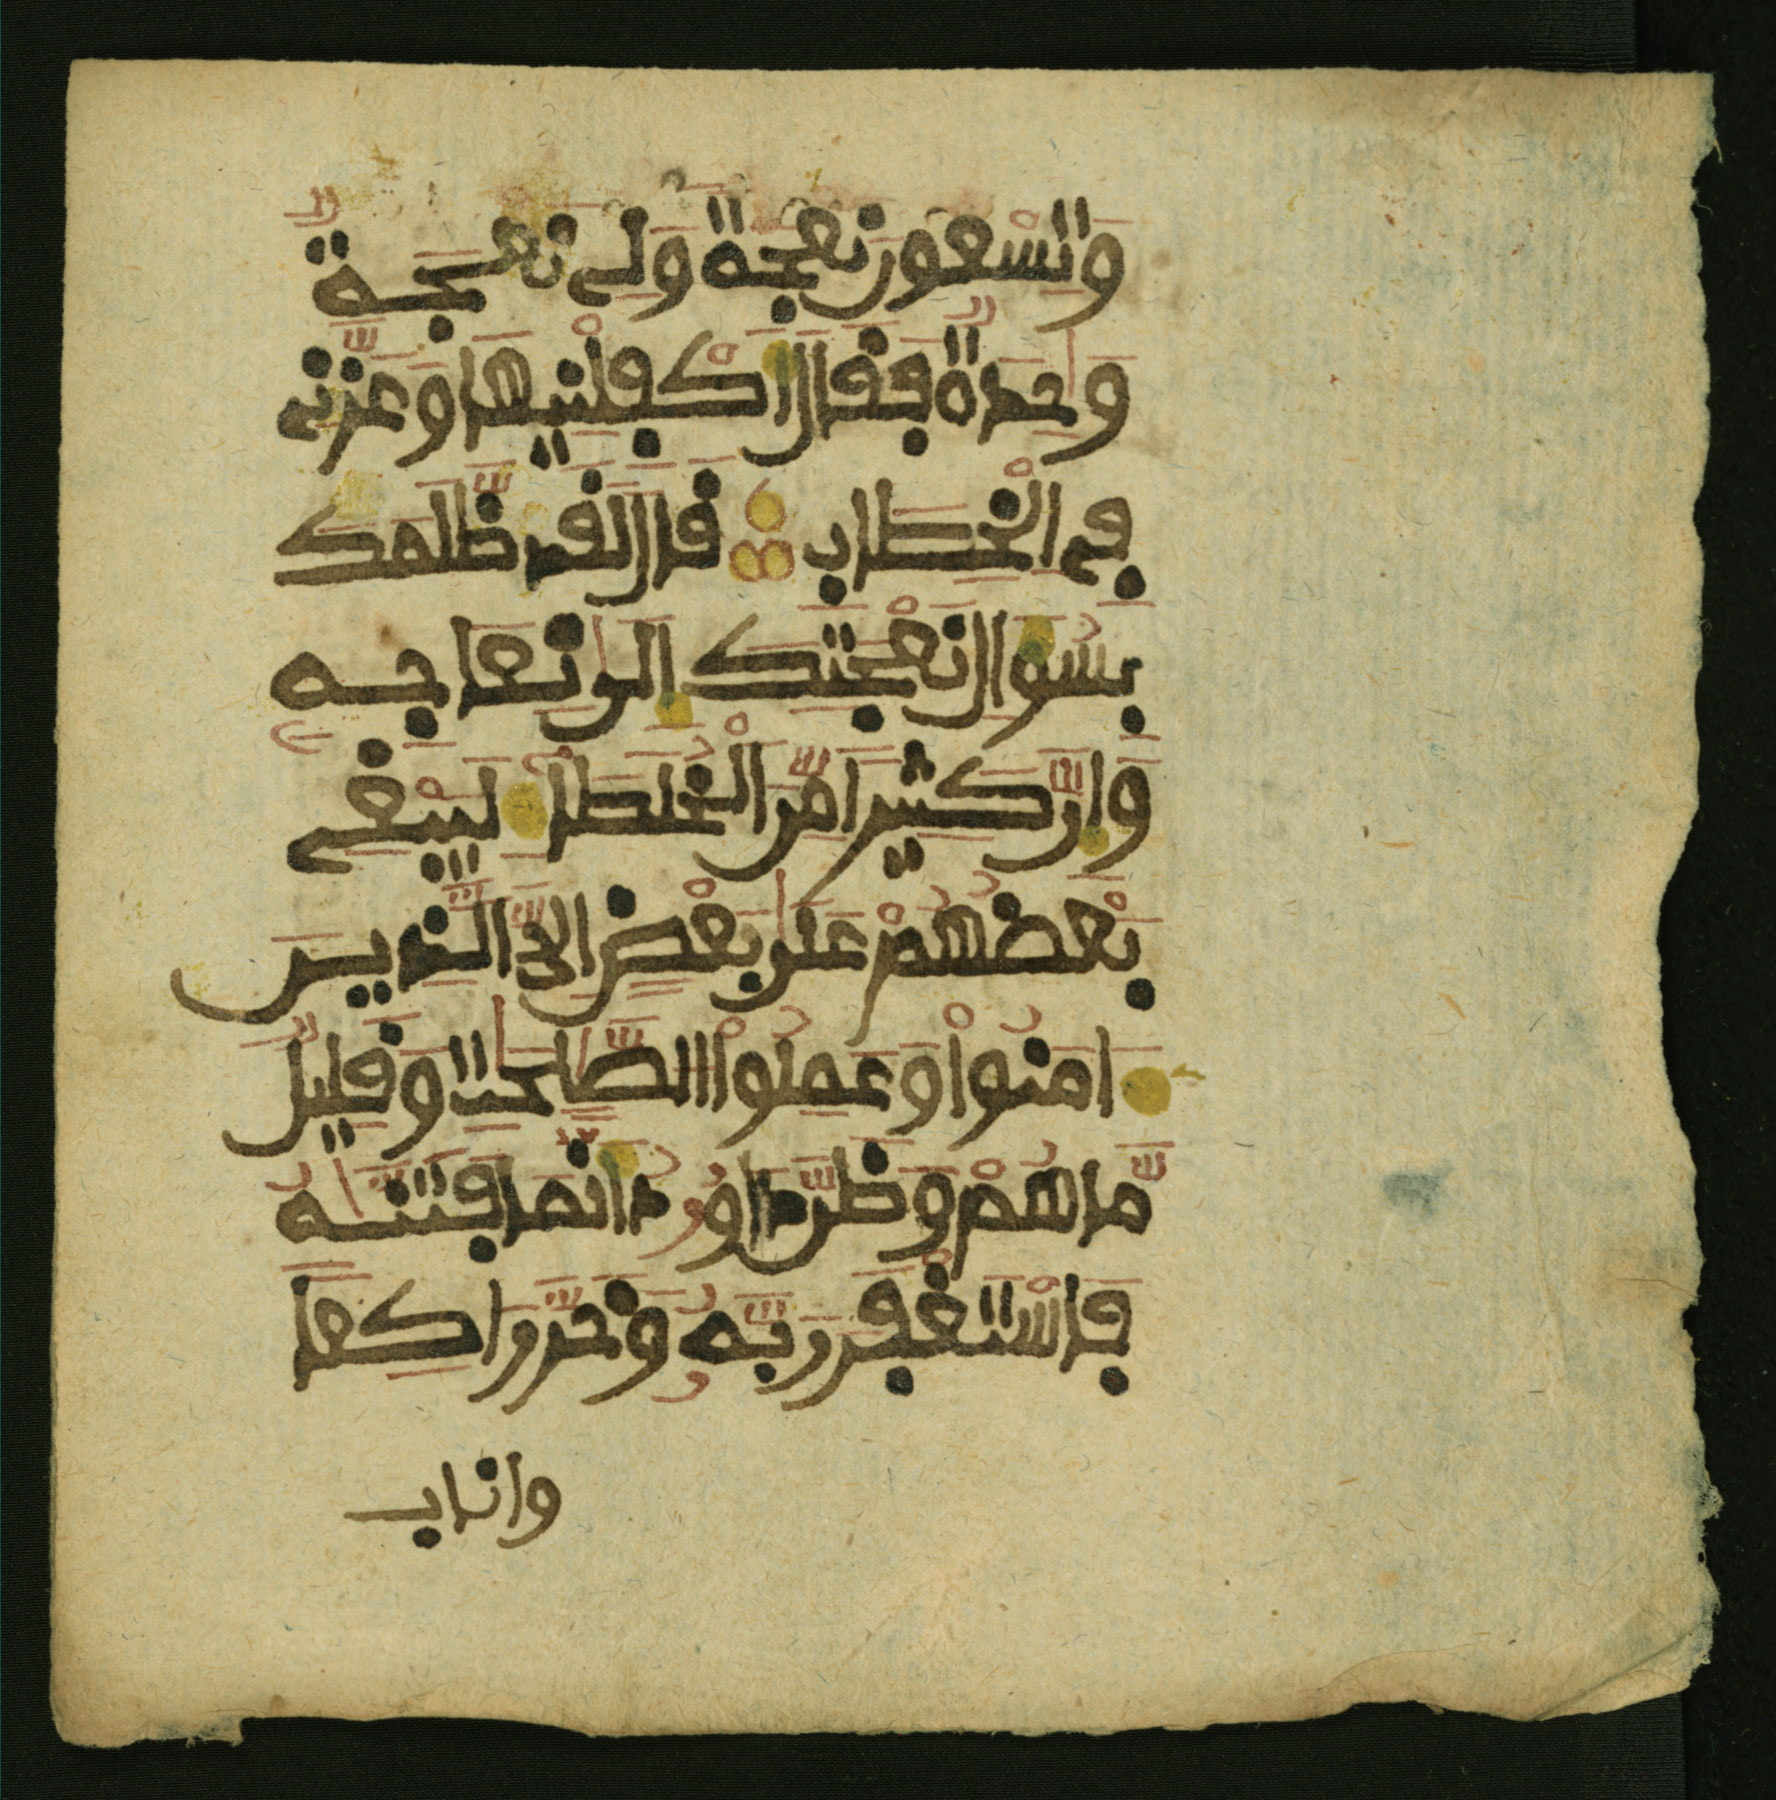 وَتِسْعُونَ نَعْجَةً وَلِيَ نَعْجَةٌ
وَٰحِدَةٌ فَقَالَ اَكْفِلْنِيهَا وَعَزَّنِي
فِي اِلْخِطَابِ قَالَ لَقَد ظَّلَمَكَ
بِسُؤَالِ نَعْجَتِكَ إِلَىٰ نِعَاجِهِ
وَإِنَّ كَثِيرًا مِّنَ اَلْخُلَطَاءِ لَيَبْغِي
بَعْضُهُمْ عَلَىٰ بَعْضٍ اِلَّا اَلذِينَ
ءَامَنُواْ وَعَمِلُواْ اُلصَّٰلِحَٰتِ وَقَلِيلٌ
مَّا هُمْ وَظَنَّ دَاوُۥدُ أَنَّمَا فَتَنَّٰهُ
فَاسْتَغْفَرَ رَبَّهُۥ وَخَرَّ رَاكِعًا
واناب